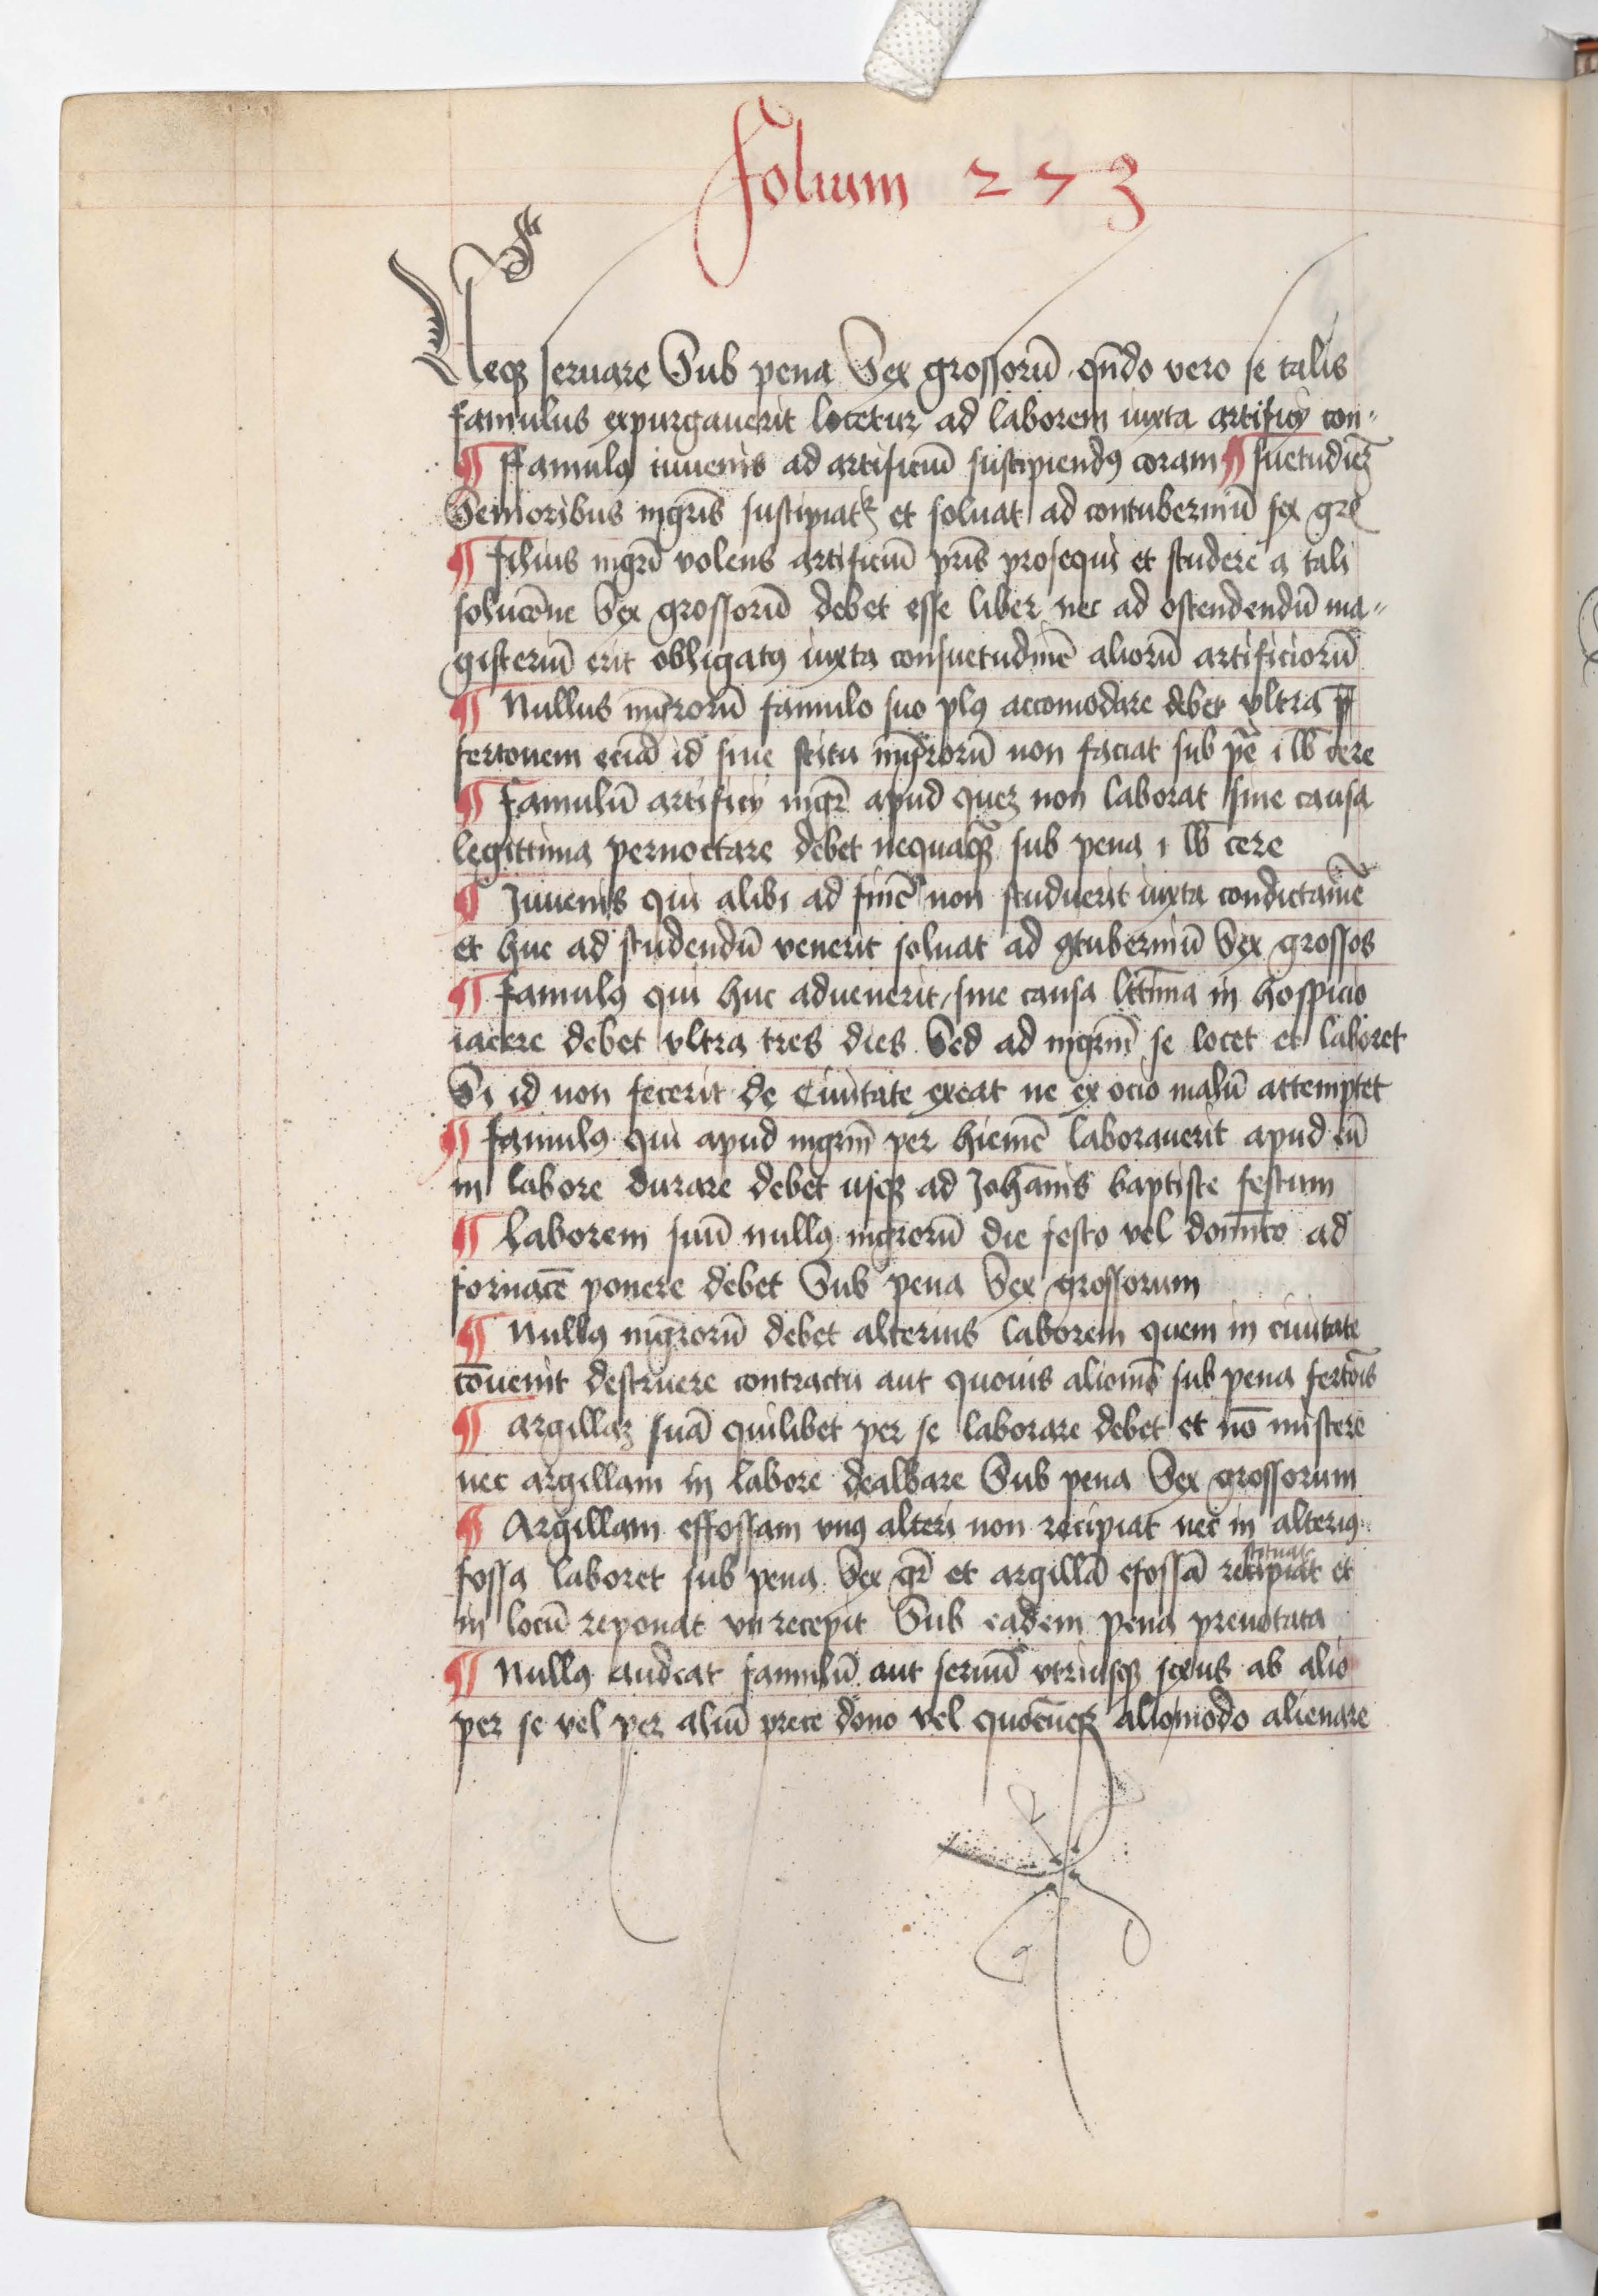 Folium 273
Neqꝫ seruare Sub pena Sex grossorū qn̄do vero se talis
famulus expurgauerit locetur ad laborem iuxta artificij con⸗
¶ Ffamulꝰ iuuenis ad artificiū suscipiendꝰ coram ¶ suetudiēꝫ
Senioribus mgr̄is suscipiatꝛ et soluat ad contuberniū sex gr̄
¶ Filius mgrī volens artificiū pr̄is prosequi et studere a tali
solucōne Sex grossorū debet esse liber nec ad ostendendū ma⸗
gisteriū erit obligatꝰ iuxta consuetudinē aliorū artificiorū
¶ Nullus mgr̄orū famulo suo plꝰ accomodare debet vltra
fertonem eciā id sine scitu mgr̄orū non faciat sub pē i lb cere
¶ Famulū artificij mgr̄ apud queꝫ non laborat sine causa
legittima pernoctare debet nequaqꝫ sub pena i lb cere
¶ Juuenis qui alibi ad finē non studuerit iuxta condictamē
et huc ad studendū venerit soluat ad ꝯtuberniū Sex grossos
¶ Famulꝰ qui huc aduenerit sine causa lt̄tima in hospicio
iacere debet vltra tres dies Sed ad mgr̄m se locet et laboret
Si id non fecerit de Ciuitate exeat ne ex ocio malū attemptet
¶ Famulꝰ qui apud mgrm̄ per hiemē laborauerit apud eū
in labore durare debet usqꝫ ad Johānis baptiste festum
¶ Laborem suū nullꝰ mgr̄orū die festo vel domīco ad
fornacē ponere debet Sub pena Sex grossorum
¶ Nullꝰ mgr̄orū debet alterius laborem quem in ciuitate
cōuenit destruere contractu aut quouis aliomō sub pena fertōis
¶ argillaꝫ suā quilibet per se laborare debet et nō miscere
nec argillam in labore dealbare Sub pena Sex grossorum
¶ Argillam effossam vnꝰ alteri non recipiat nec in alteriꝰ
fossa laboret sub pena Sex gr̄ et argillā efossā recipiat stituat et
in locū reponat vn recepit Sub eadem pena prenotata
¶ Nullꝰ audeat famulū aut seruū vtriusqꝫ sexus ab alio
per se vel per aliū prece dono vel quocūqꝫ aliomodo alienare